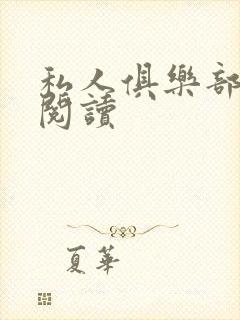 私人俱樂部
閱讀
夏華